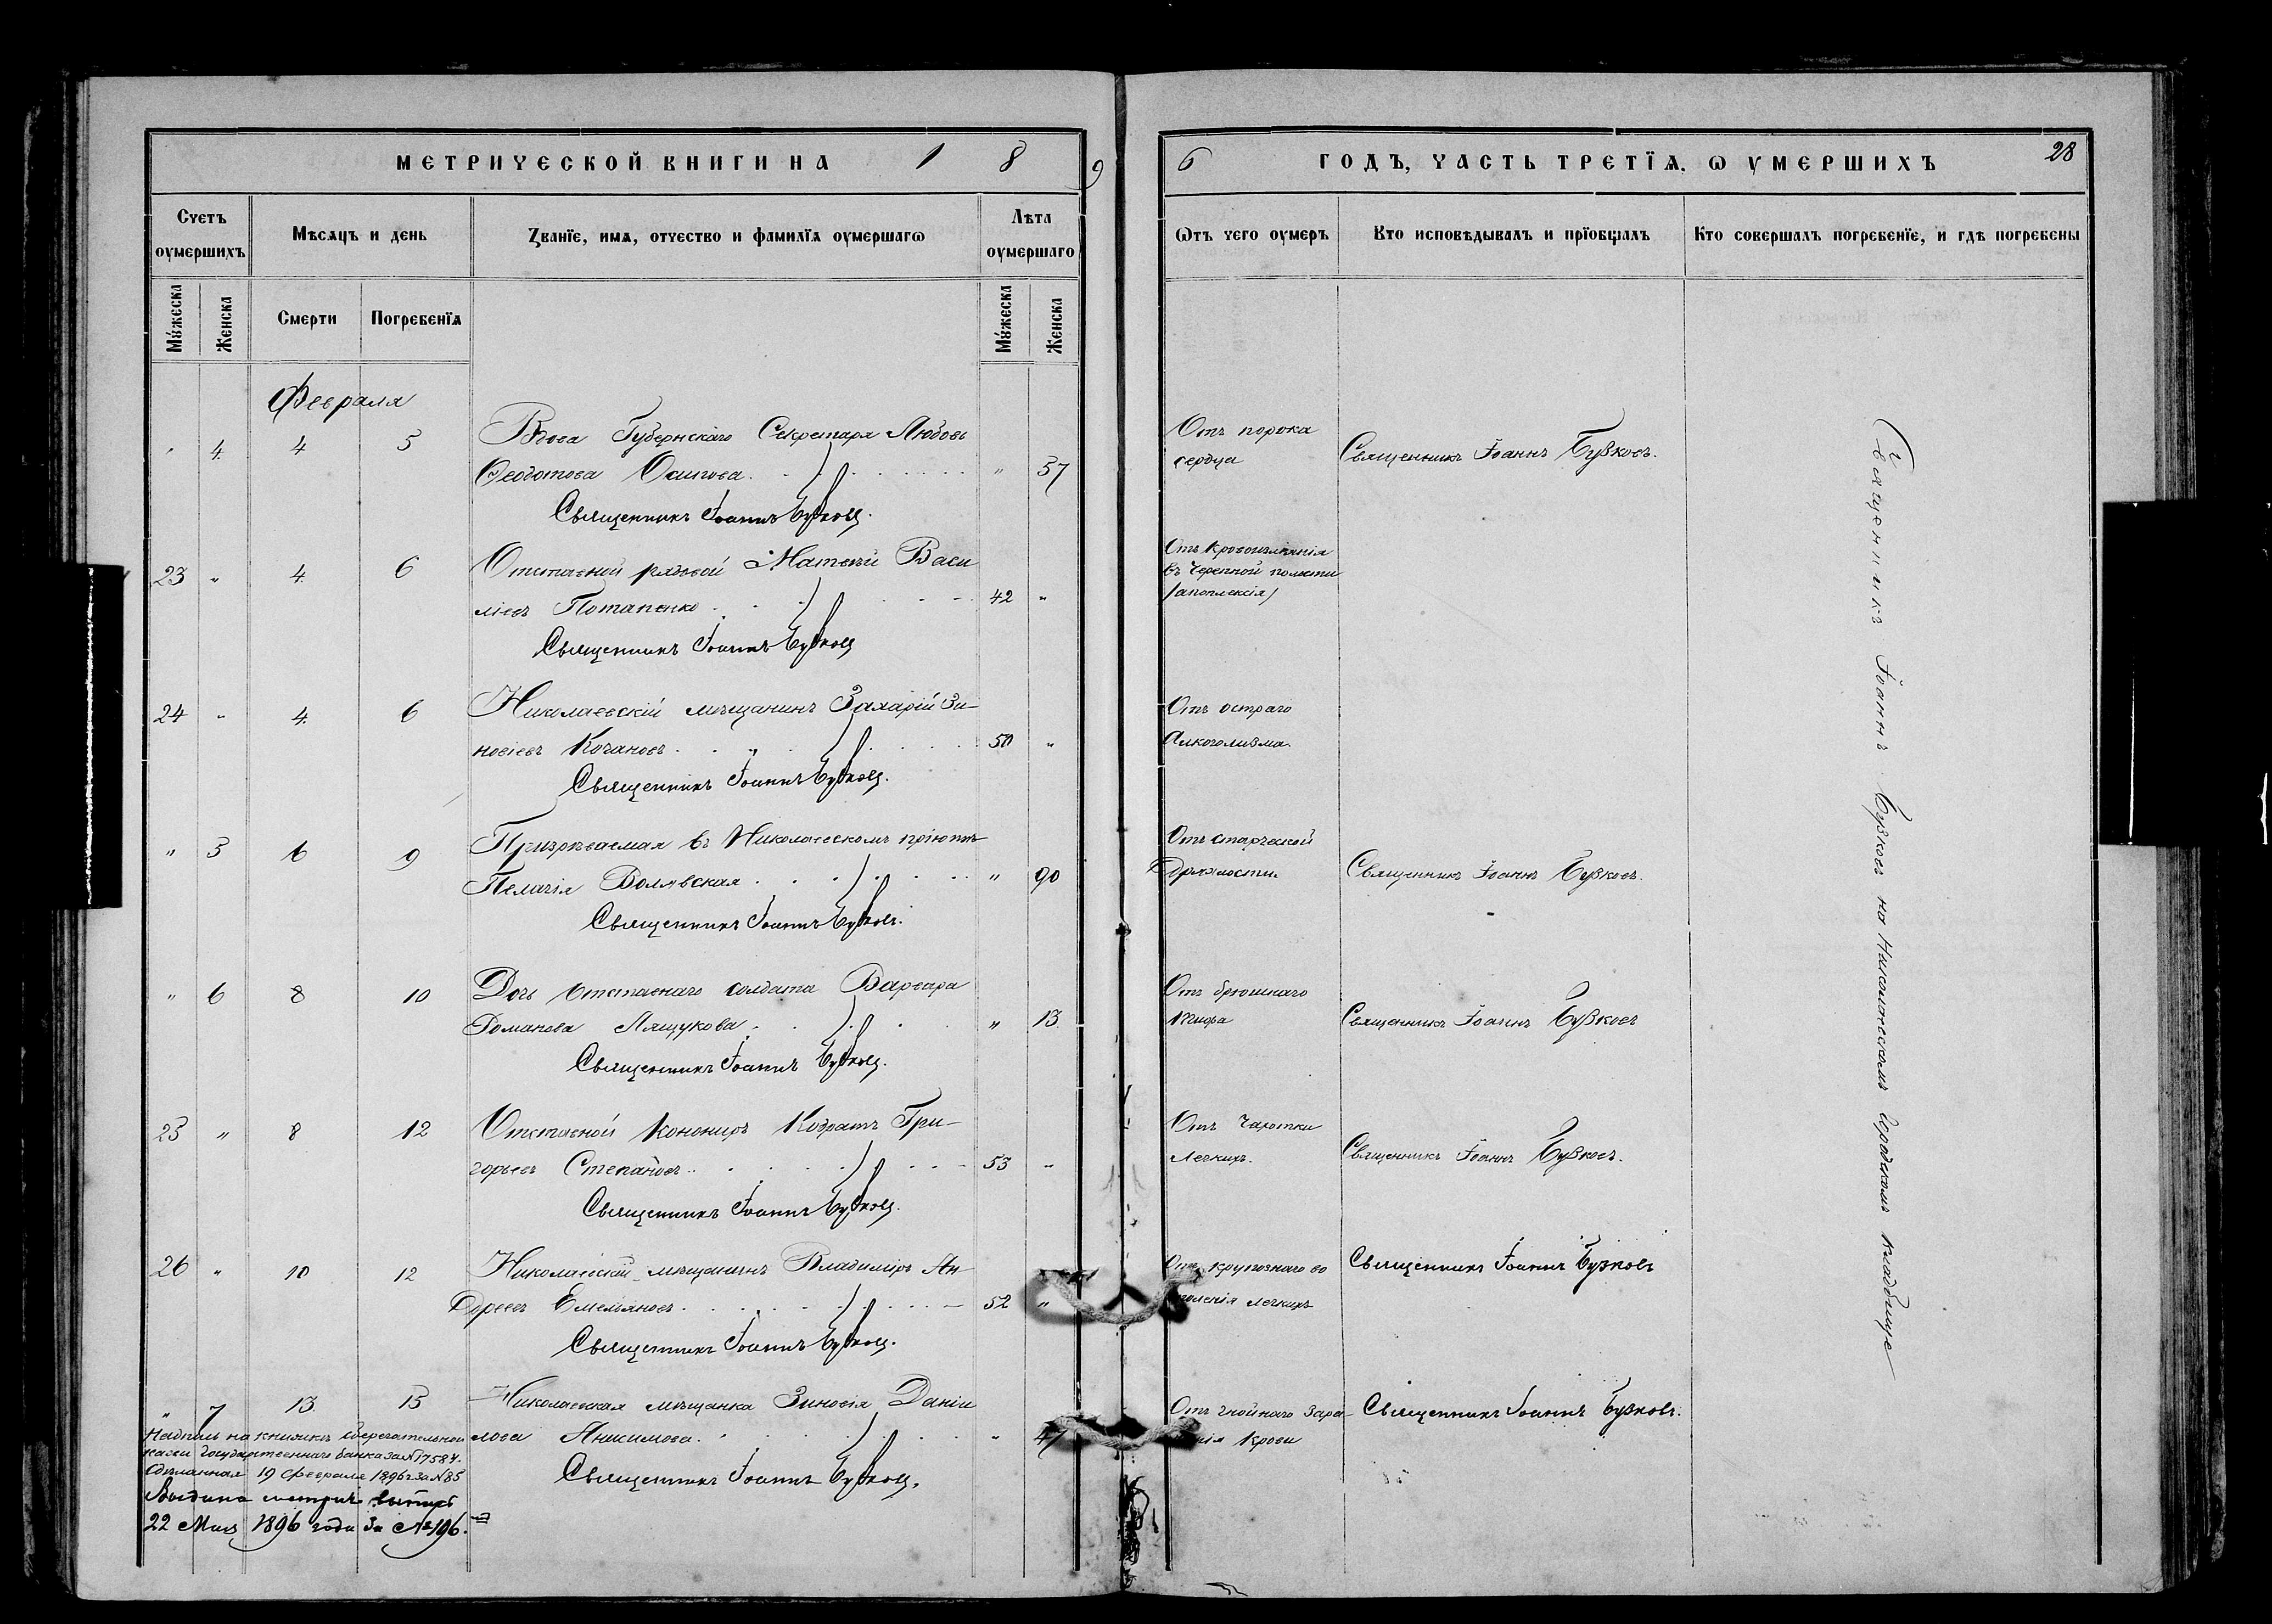 МЕТРИЧЕСКОЙ КНИГИ НА 1 8 9
6 ГОДЪ, ЧАСТЬ ТРЕТЇѦ, Ѡ УМЕРШИХЪ 28
Счетъ оумершихъ
Мѣсѧцъ и день
Званїе, имѧ, отчество и фамилїѧ оумершагѡ
Лѣта оумершаго
Ѿтъ чего оумеръ
Кто исповѣдывалъ и прїобщалъ
Кто совершалъ погребенїе, и гдѣ погребены
Мꙋжеска
Женска
Смерти
Погребенїѧ
Мꙋжеска
Женска
Февраля
" 4 4 5 Вдова Губернскаго Секретаря Любовь
Ѳеодотова Осипова " 57
Священникъ Іоаннъ Бузковъ.
Отъ порока
сердца
Священникъ Іоаннъ Бузковъ.
23 " 4 6 Отставной рядовой Матвѣй Васи
ліевъ Потапенко 42 "
Священникъ Іоаннъ Бузковъ
Отъ кровоизліянія
въ черепной полости
/апоплексія/
24 " 4 6 Николаевскій мѣщанинъ Захарій Зи-
новіевъ Качановъ 50 "
Священникъ Іоаннъ Бузковъ.
Отъ остраго
Алкоголизма.
" 5 6 9 Призрѣваемая въ Николаевскомъ пріютѣ
Пелагія Волявская " 90
Священникъ Іоаннъ Бузковъ.
Отъ старческой
Дряхлости.
Священникъ Іоаннъ Бузковъ.
" 6 8 10 Дочь отставнаго солдата Варвара
Романова Лящукова " 13.
Священникъ Іоаннъ Бузковъ.
Отъ брюшнаго
тифа
Священникъ Іоаннъ Бузковъ
25 " 8 12 Отставной Канониръ Кодратъ Гри-
горьевъ Степановъ 53 "
Священникъ Іоаннъ Бузковъ.
Отъ Чахотки
Легкихъ.
Священникъ Іоаннъ Бузковъ.
26 " 10 12 Николаевскій мѣщанинъ Владиміръ Ан-
Дреевъ Емельяновъ 52 "
Священникъ Іоаннъ Бузковъ.
Отъ крупознаго во
спаленія легкихъ
Священникъ Іоаннъ Бузковъ
" 7 13. 15 Николаевская мѣщанка Зиновія Даніи
лова Анисимова " 47
Священникъ Іоаннъ Бузковъ.
Отъ гнойнаго зара-
женія крови
Священникъ Іоаннъ Бузковъ.
Священникъ Іоаннъ Бузковъ на Николаевскомъ городскомъ кладбище
Надпись на книжкѣ сберегательной
кассы Государственнаго банка за № 17584.
сдѣланная 19 февраля 1896 г за № 85
Выдана метрич. выпись
22 Мая 1896 года за № 196.